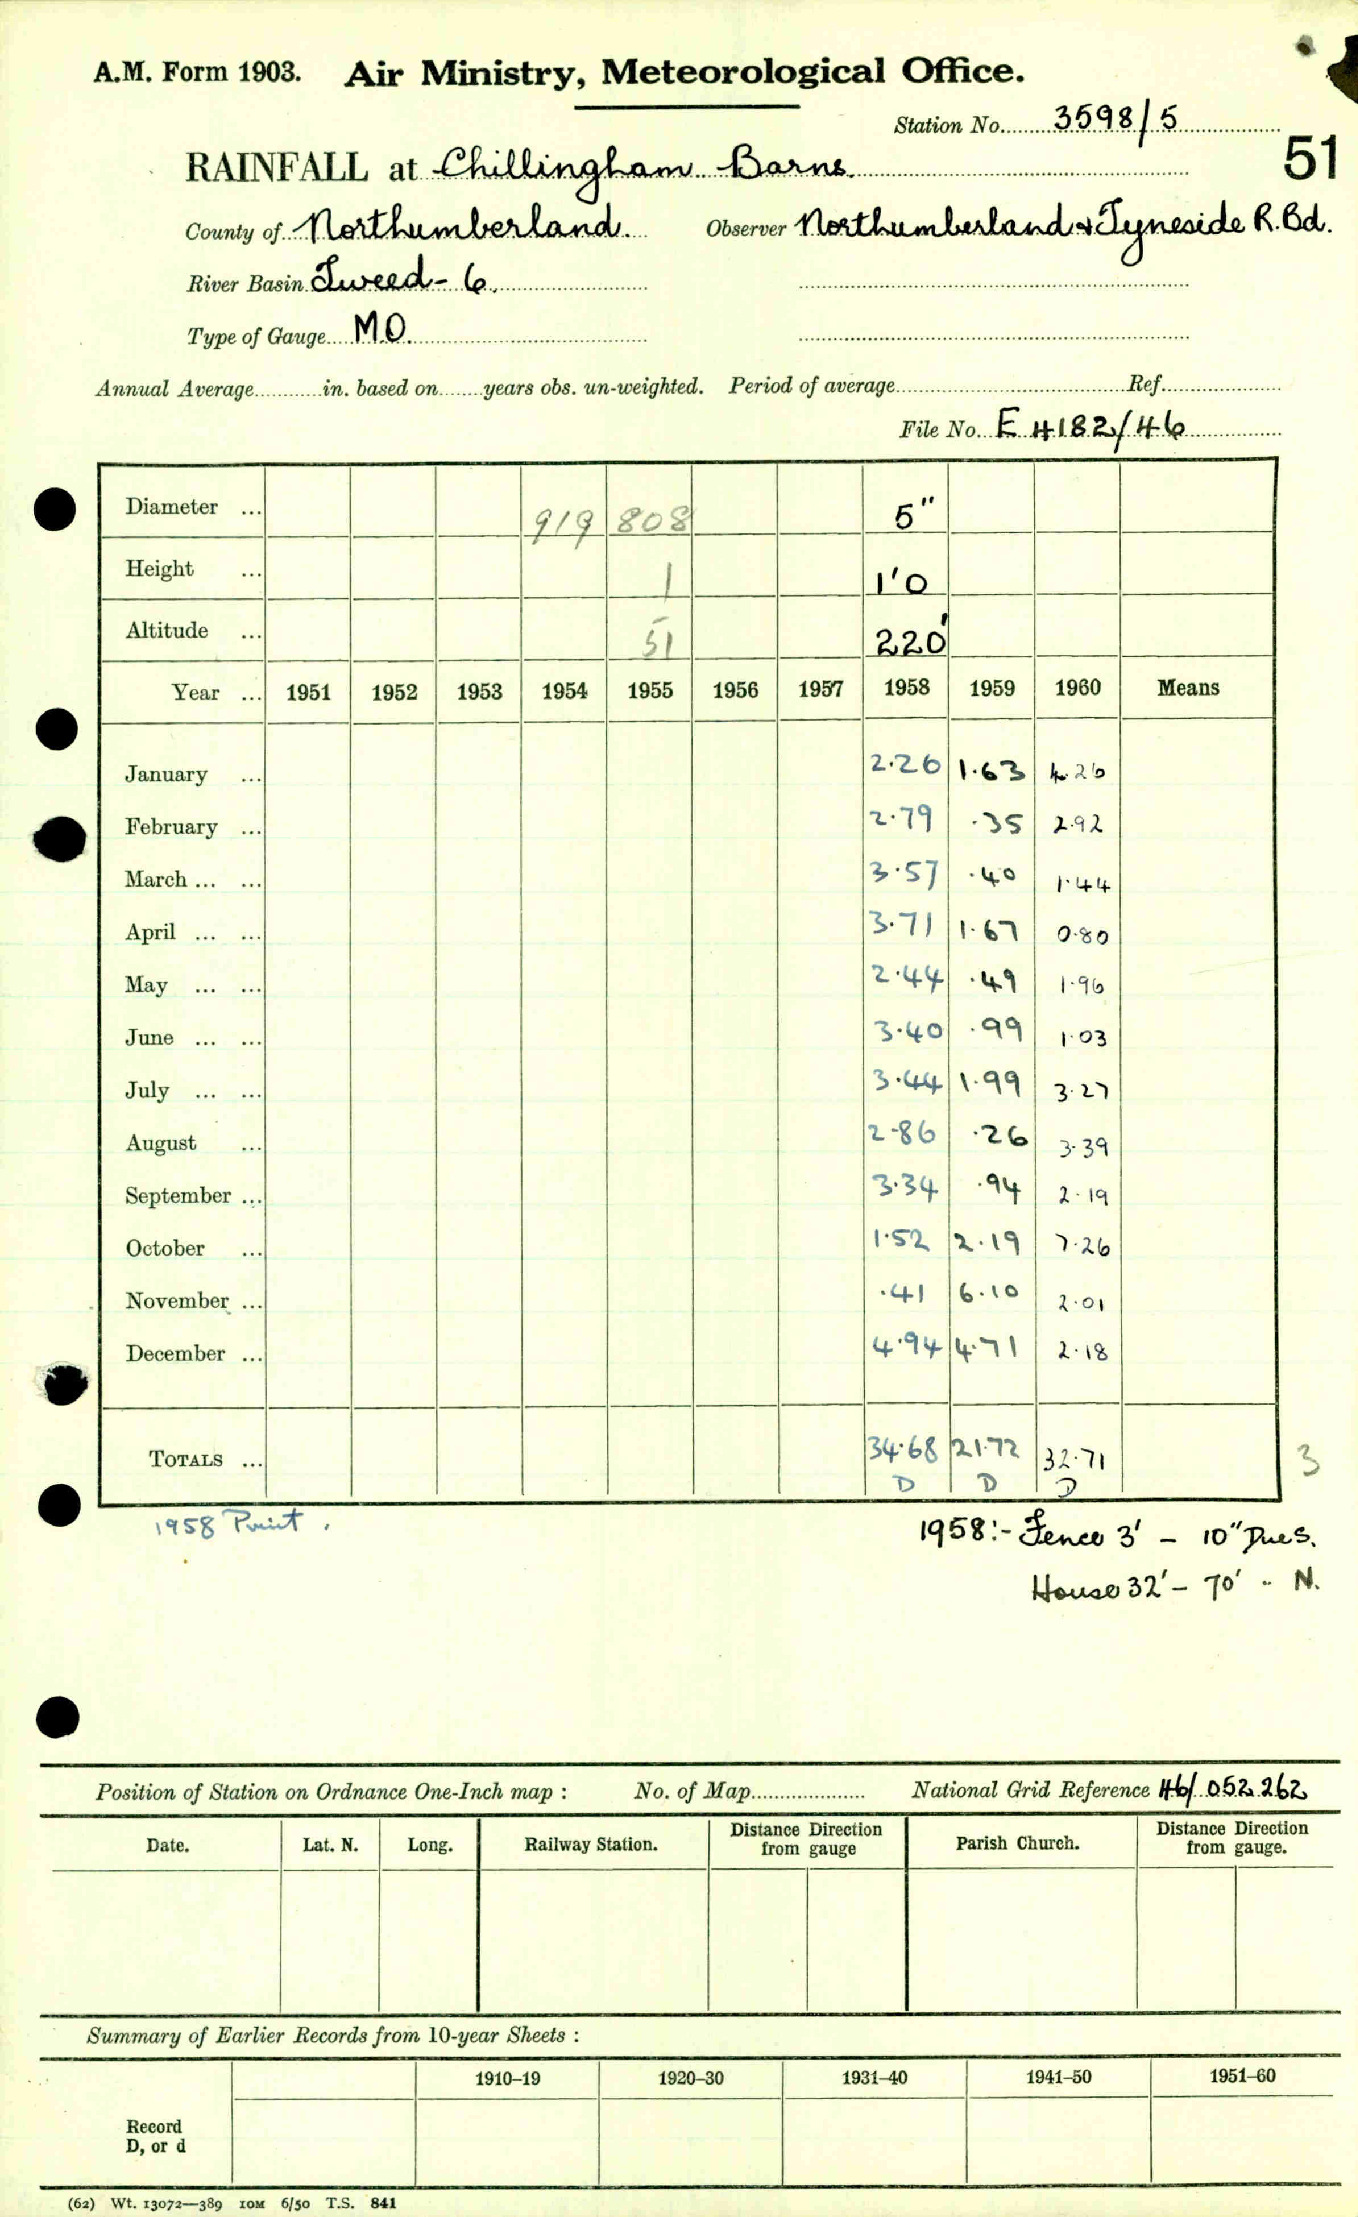 A.M. Form 1903. Air Ministry, Meteorological Office.
Station No. 3598/5
51
RAINFALL at Chillingham Barns.
County of Northumberland. Observer Northumberland & Tyneside R. Bd.
River Basin Tweed - 6.
Type of Gauge M.O.
Annual Average............in. based on........years obs. un-weighted. Period of average.......... Ref..........
File No. E 4182/46
Diameter ... 919 808 5"
Height ... 1 1'0
Altitude ... 51 220'
Year ... 1951 1952 1953 1954 1955 1956 1957 1958 1959 1960 Means
January ... 2.26 1.63 4.26
February ... 2.79 .35 2.92
March ... ... 3.57 .40 1.44
April ... ... 3.71 1.67 0.80
May ... ... 2.44 .49 1.96
June ... ... 3.40 .99 1.03
July ... ... 3.44 1.99 3.27
August ... 2.86 .26 3.39
September ... 3.34 .94 2.19
October ... 1.52 2.19 7.26
November ... .41 6.10 2.01
December ... 4.94 4.71 2.18
TOTALS ... 34.68 21.72 32.71 3
D D D
1958 Print. 1958:- Fence 3' - 10" Due S.
House 32' - 70' .. N.
Position of Station on Ordnance One-Inch map : No. of Map.......... National Grid Reference 46/ 052 262
Date. Lat. N. Long. Railway Station. Distance from Direction gauge Parish Church. Distance from Direction gauge.
Summary of Earlier Records from 10-year Sheets :
1910–19 1920–30 1931–40 1941–50 1951–60
Record
D, or d
(62) Wt. 13072—389 10M 6/50 T.S. 841